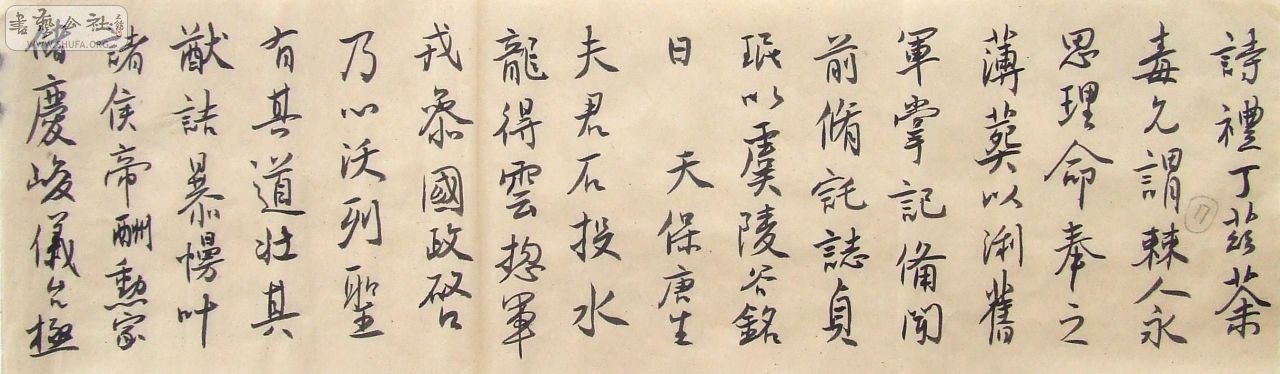 詩禮丁茲荼
毒允謂棘人永
思理命奉之
薄葬以渊舊
軍掌記備聞
前脩託誌貞
珉以虞陵谷銘
日 天保唐生
夫君石投水
龍得雲揔軍
戎叅國政啓
乃心沃列聖
有其道壯其
猷詰暴幔叶
諸侯帝酬勲家
儲慶峻儀台極
17
書藝公社
WWW.SHUFA.ORG